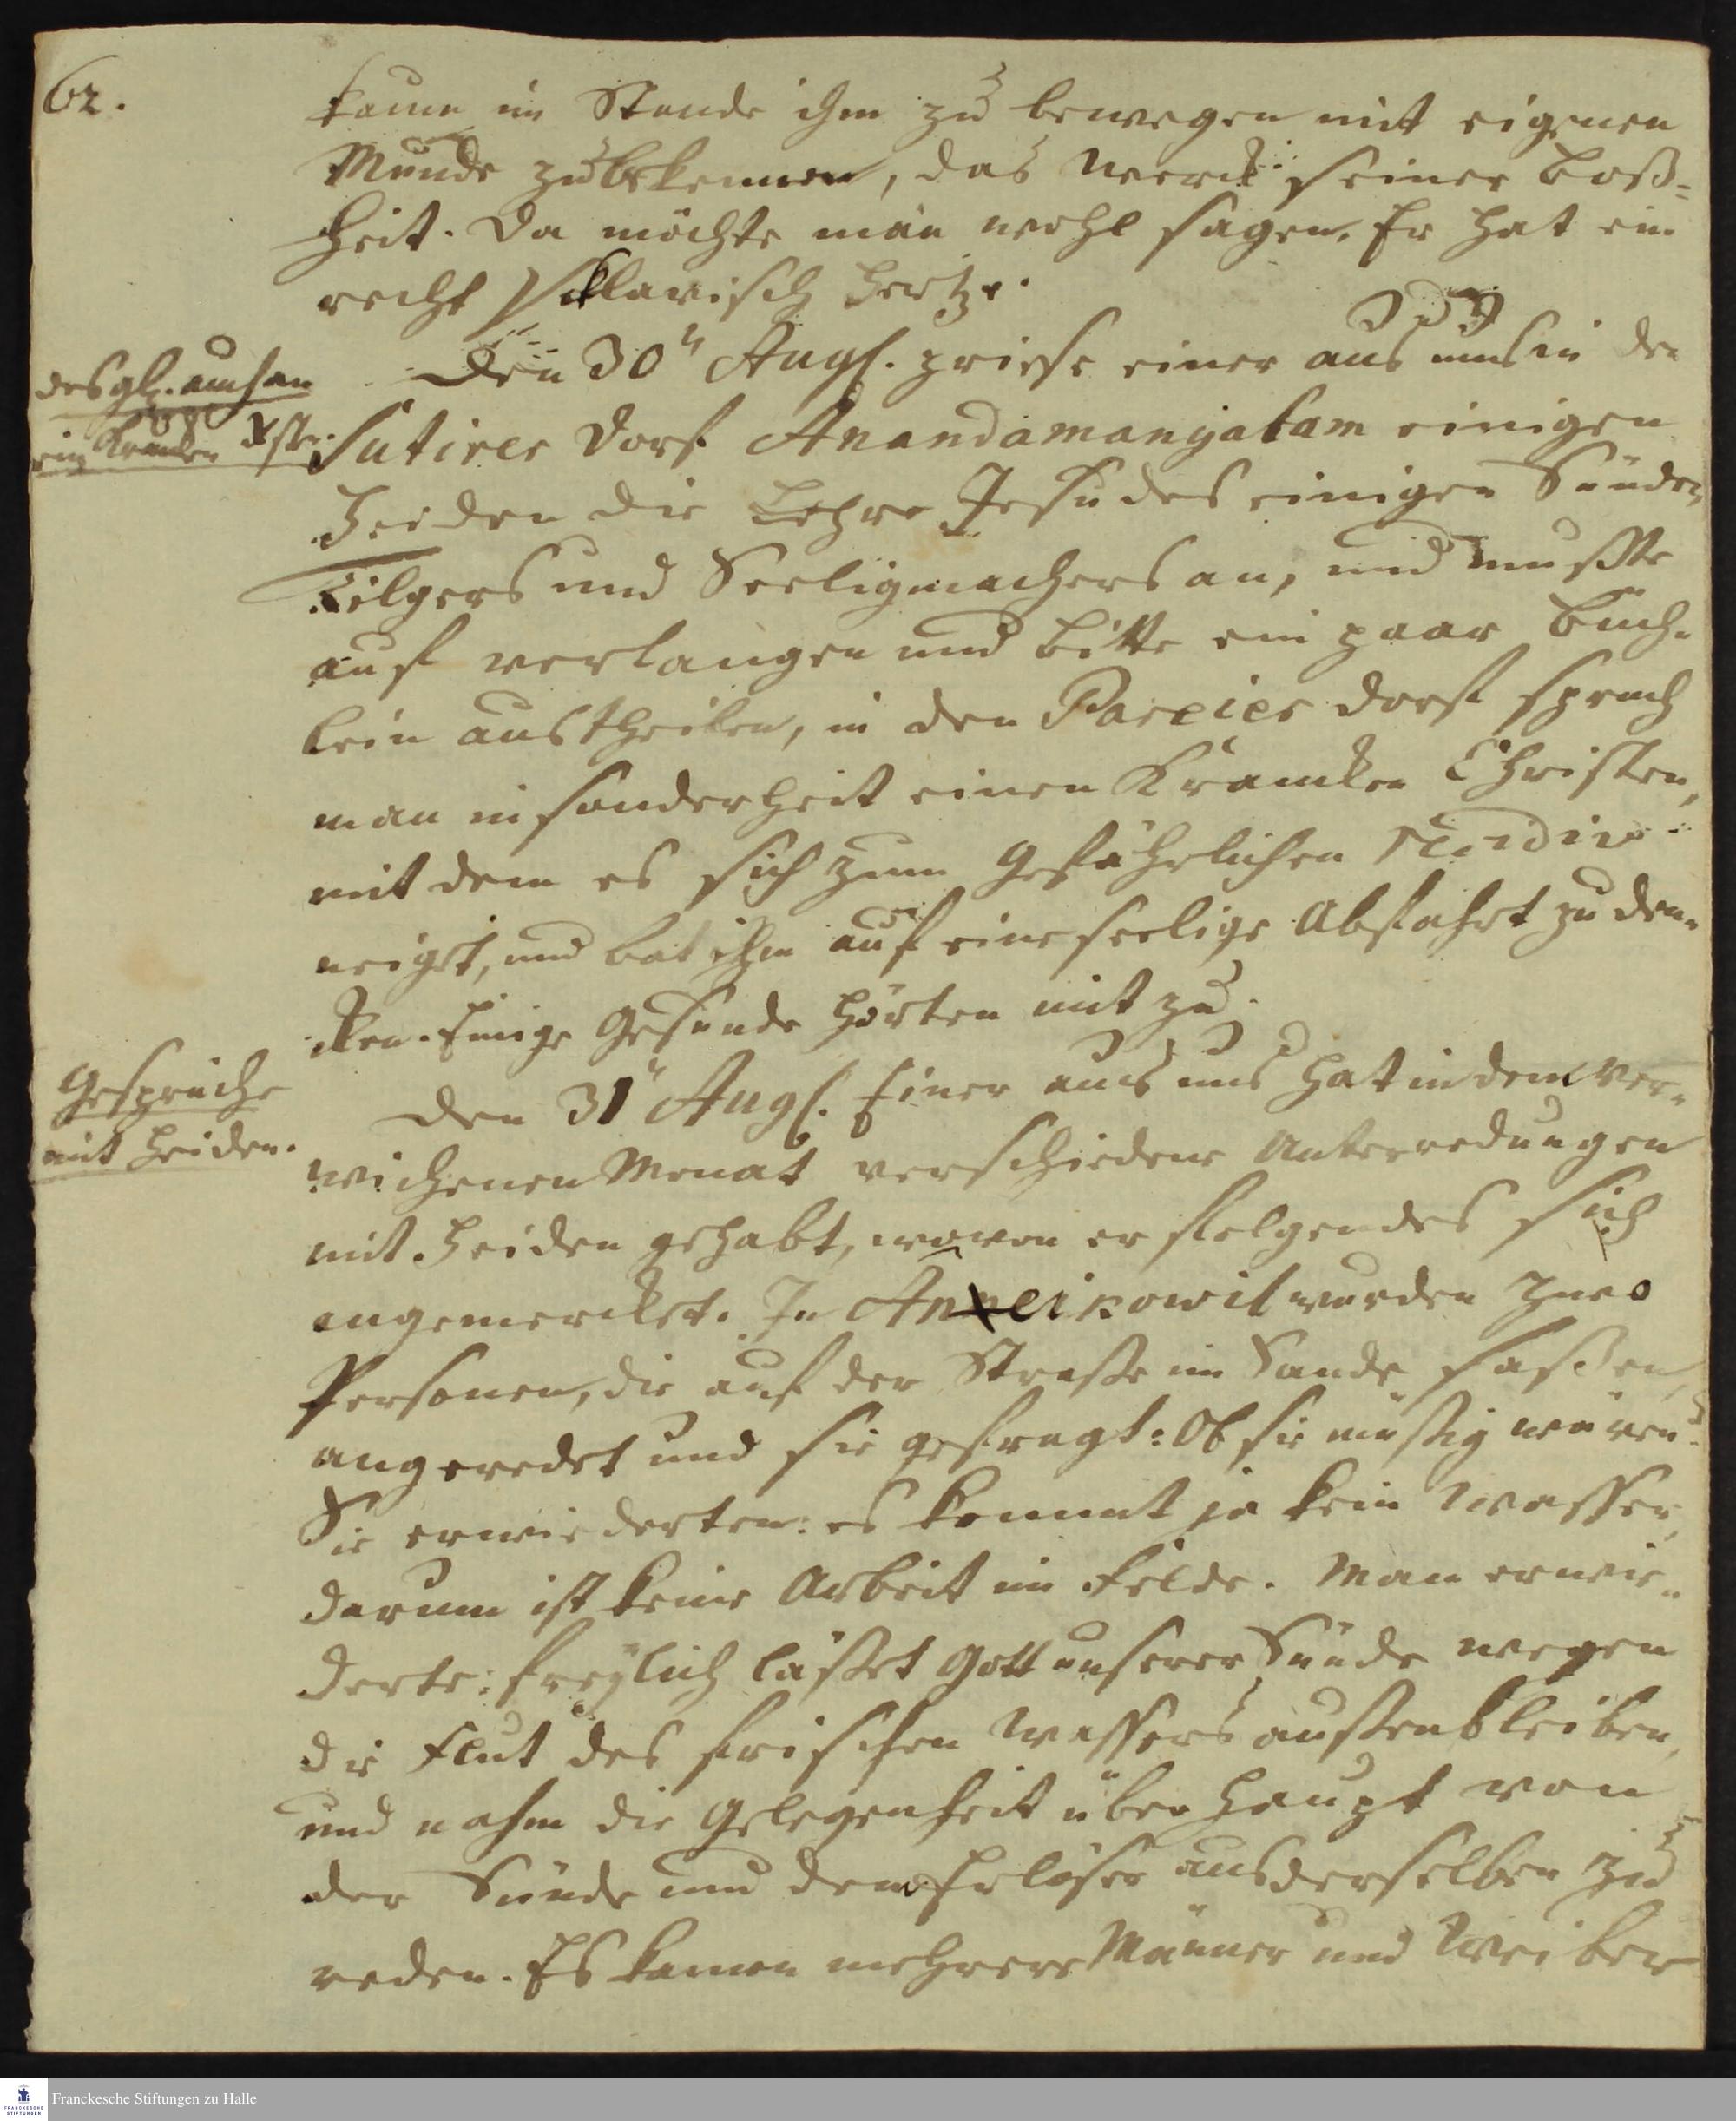 62.
kaum im Stande ihn zu bewegen mit eigenen
Munde zu bekennen, das Werck seiner Boß=
heit. Da möchte man wohl sagen. Er hat ein
recht Sklavisch Hertze.
Den 30n Augs. priese einer aus uns in den
desgl. auch an
ein Krancken Xsten.
Sutirer Dorf Anandamangalam einigen
Heiden die Lehre Jesu des einigen Sünden
Tilgers und Seeligmachers an, und mußte
auf verlangen und bitte ein paar Büch=
lein austheilen, in den Pareier Dorf sprach
man insonderheit einen Krancken Christen,
mit dem es sich zum gefährlichen
neiget, und bat ihn auf eine seelige Abfahrt zu den=
cken. Einige Gesunde hörten mit zu.
Gespräche
mit Heiden.
Den 31n Augs. Einer aus uns hat in dem ver=
wichenen Monat verschiedene Unterredungen
mit Heiden gehabt, wovon er folgendes sich
angemercket. In wurden zwo
Personen, die auf der Straße im Sande saßen,
angeredet und sie gefragt: Ob sie müßig wären?
Sie erwiederten: es kommt ja kein Wasser,
darum ist keine Arbeit im Felde. Man erwie=
derte: freylich läßet Gott unserer Sünde wegen
die Flut des frischen Wassers außenbleiben,
und nahm die Gelegenheit überhaupt von
der Sünde und dem Erlöser aus derselben zu
reden. Es kamen mehrere Männer und Weiber
Franckesche Stiftungen zu Halle
FRANCKESCHE
STIFTUNGEN